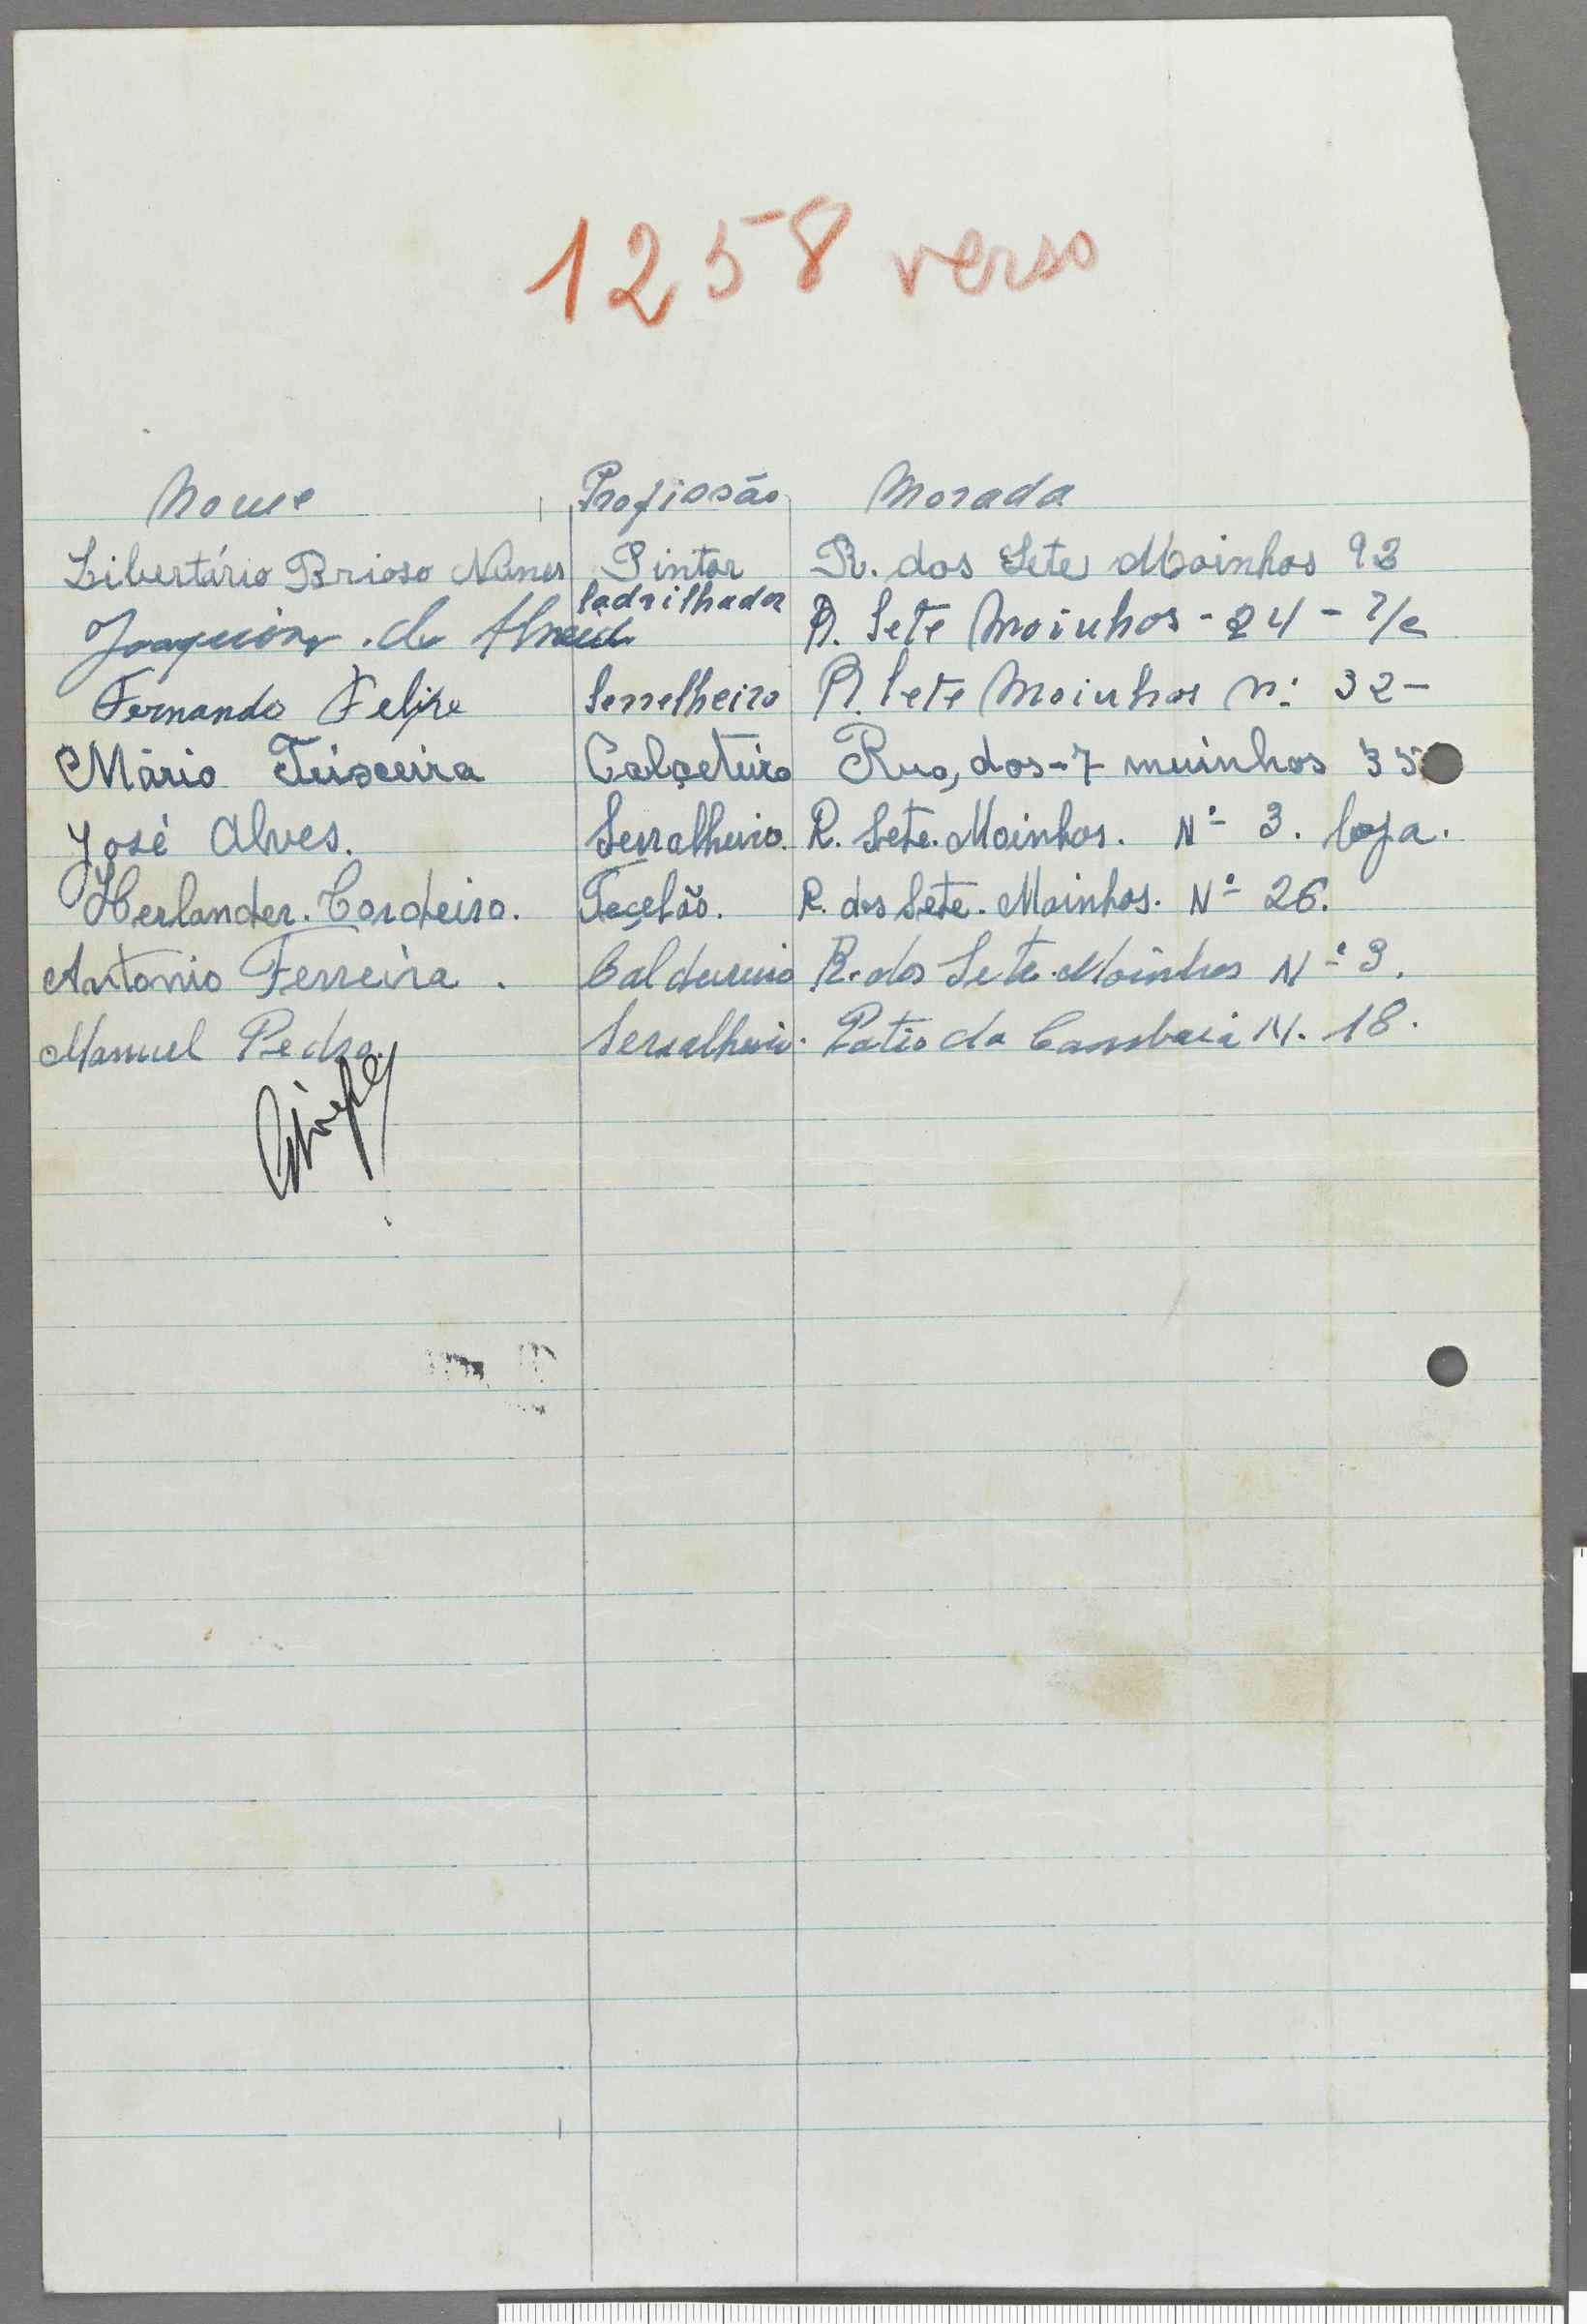 1258 verso
Nome Profissão Morada
Libertário Brioso Nunes Pintor R. dos Sete Moinhos 93
Joaquim de Almeida ladrilhador R. Sete Moinhos - 24 - r/c
Fernando Felipe Serrelheiro R. Sete Moinhos nº 32 -
Mário Teixeira Calçeteiro Rua, dos - 7 muinhos 35
José Alves. Serralheiro. R. Sete. Moinhos. Nº 3. loja.
Herlander. Cordeiro. Teçelão. R. dos Sete. Moinhos. Nº 26.
Antonio Ferreira. Caldereiro R. dos Sete Moinhos Nº 3.
Manuel Pedro. Serralheiro. Patio da N. 18.